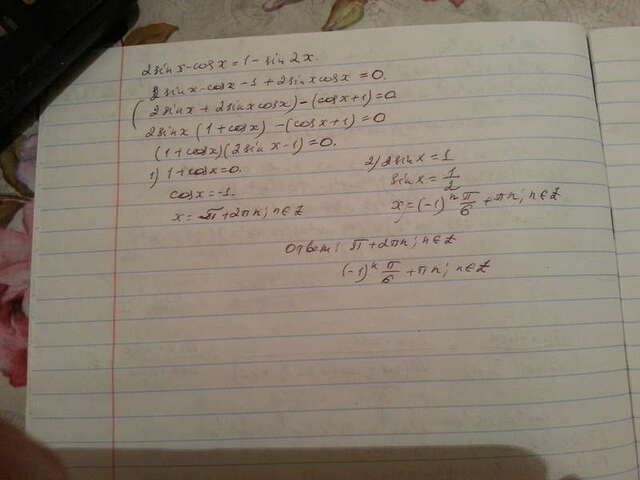 2sinx-cosx=1-sin2x.
2sinx-cosx-1+2sinxcosx=0.
(2sinx+2sinxcosx)-(cosx+1)=0
2sinx(1+cosx)-(cosx+1)=0
(1+cosx)(2sinx-1)=0.
1) 1+cosx=0.
cosx=-1.
x=π+2πn; n∈Z
2) 2sinx=1
sinx=1/2
x=(-1)^n π/6+πn; n∈Z
Ответ: π+2πn; n∈Z
(-1)^n π/6+πn; n∈Z